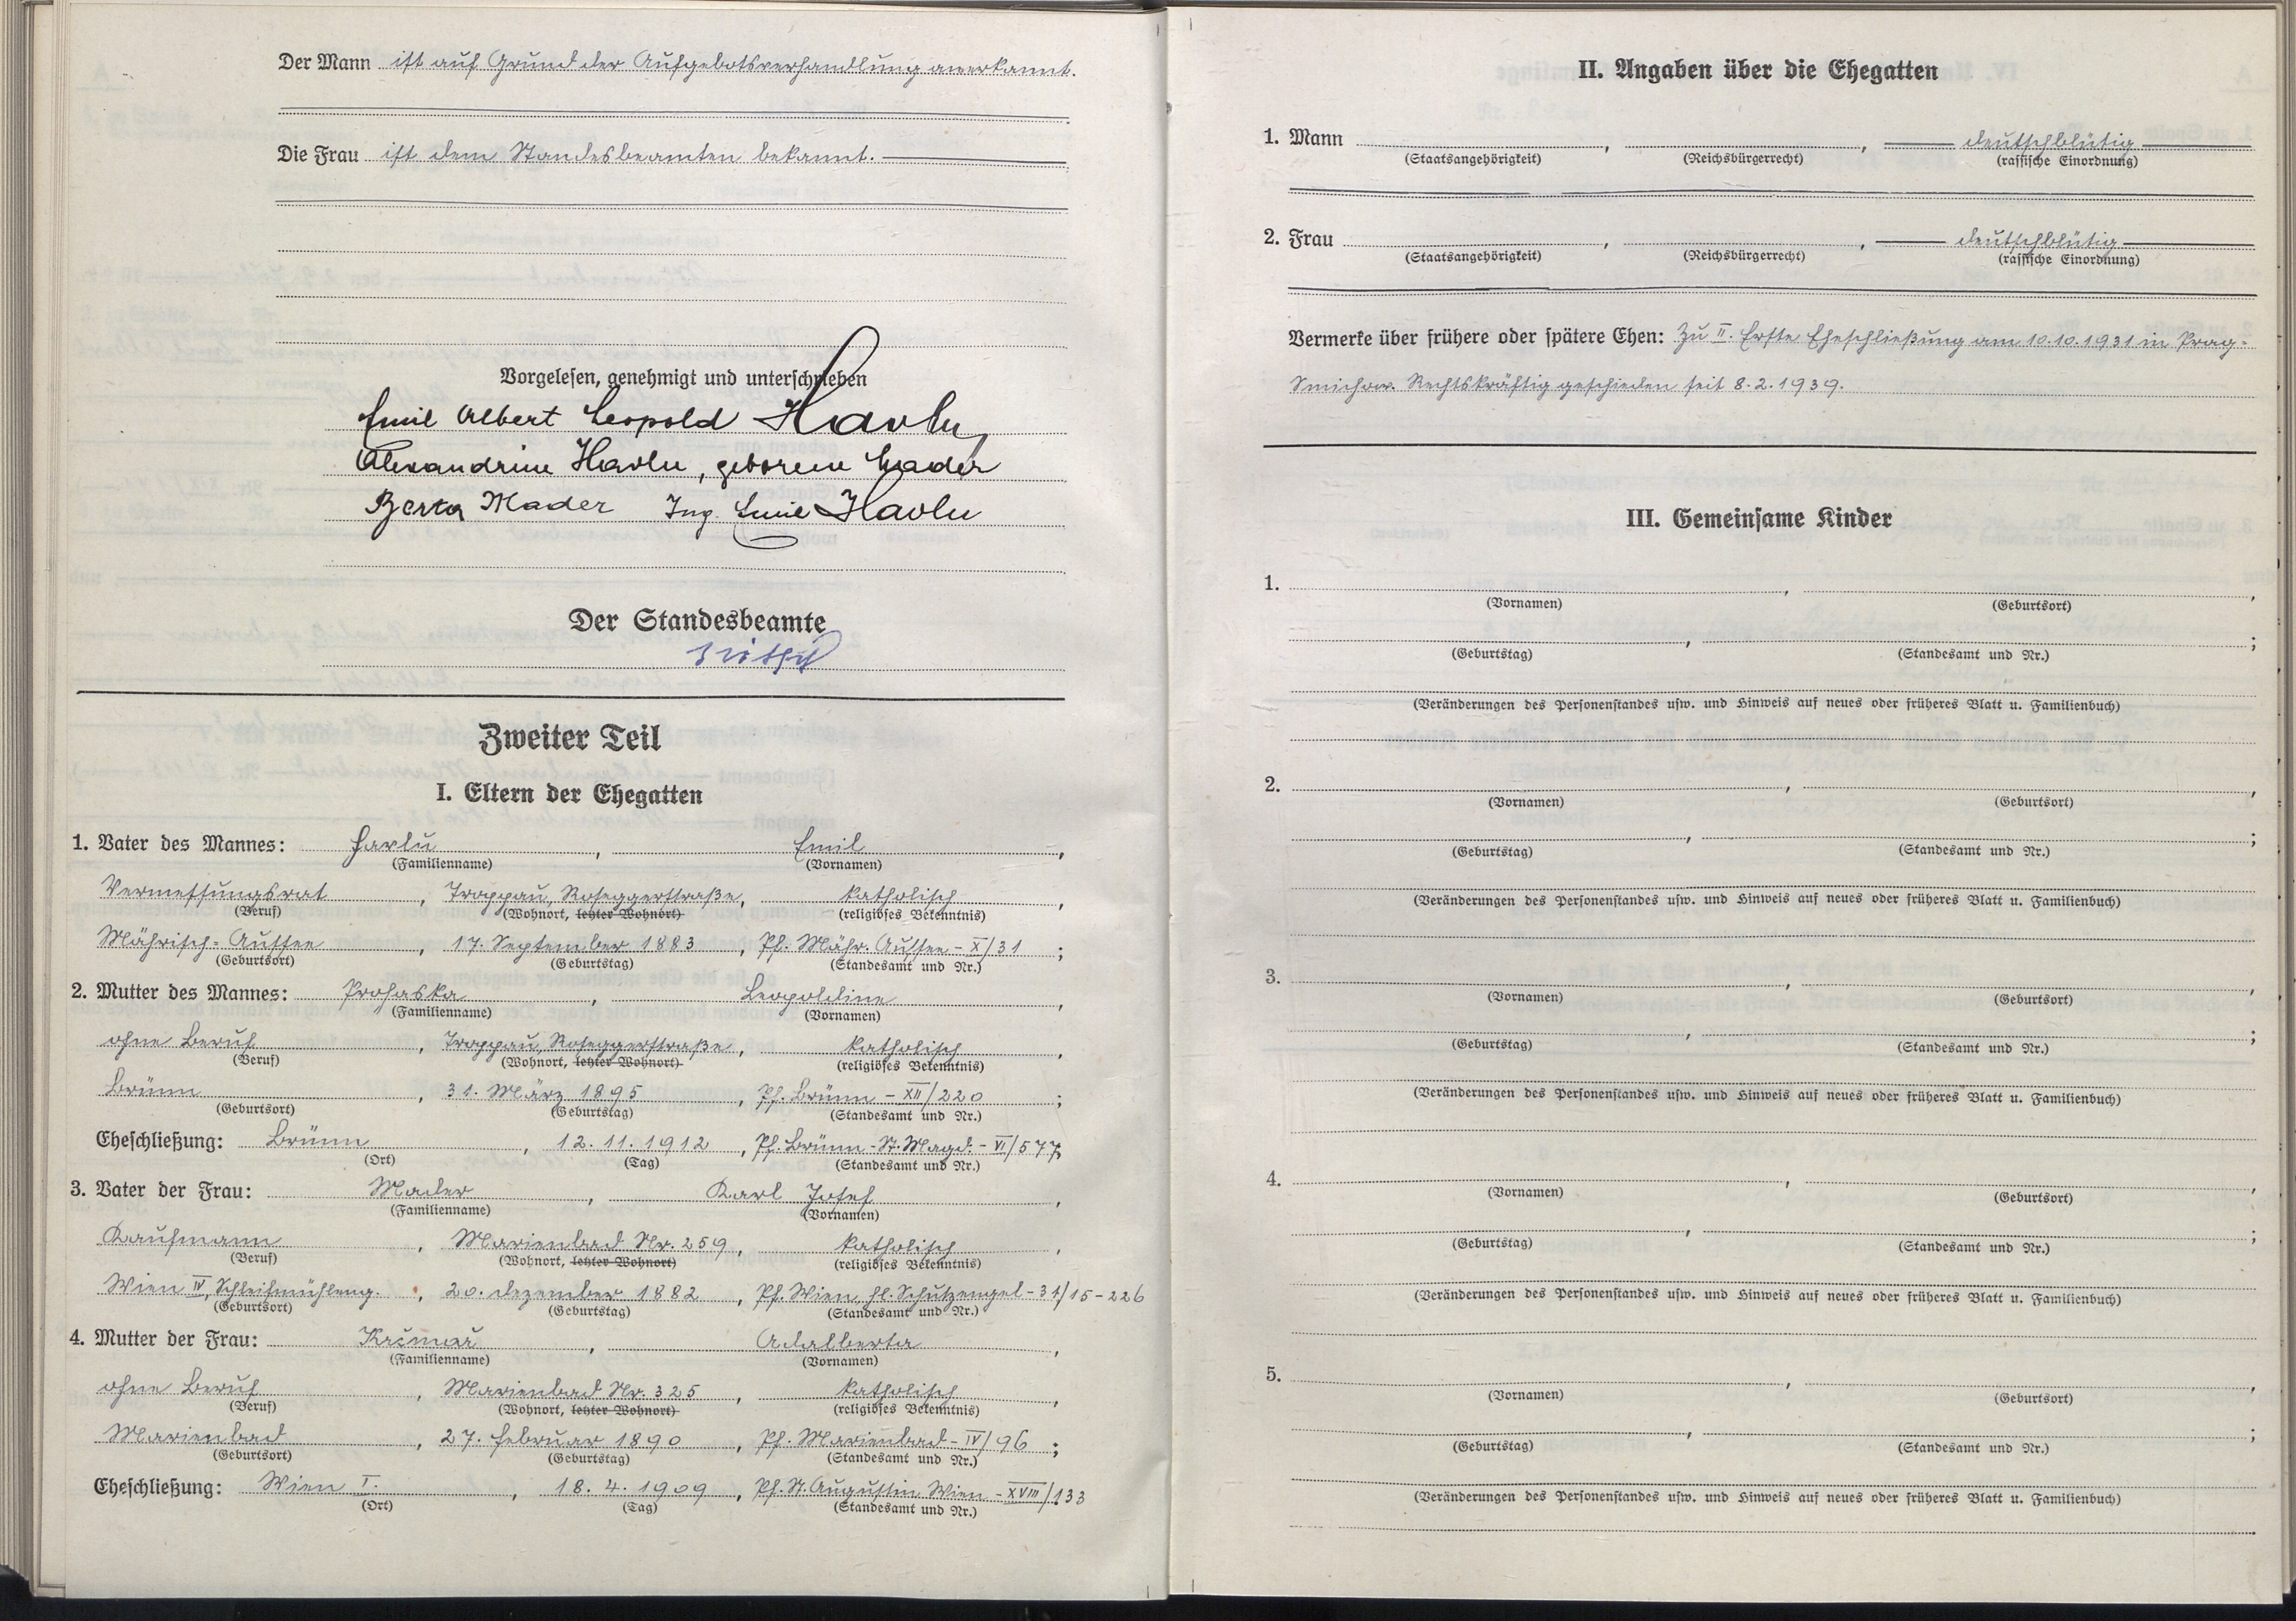 Der Mann ist auf Grund der Aufgebotsverhandlung anerkannt.
Die Frau ist dem Standesbeamten bekannt.
Vorgelesen, genehmigt und unterschrieben
Emil Albert Leopold Havlu
Alexandrine Havlu, geborene Mader
Berta Mader Ing. Emil Havlu
Der Standesbeamte
Zweiter Teil
I. Eltern der Ehegatten
1. Vater des Mannes: Havlu, Emil,
(Familienname) (Vornamen)
Vermessungsrat, Troppau, Roseggerstraße, katholisch,
(Beruf) (Wohnort, letzter Wohnort) (religiöses Bekenntnis)
Mährisch-Aussee, 17. September 1883, Pf. Mähr. Aussee - X/31;
(Geburtsort) (Geburtstag) (Standesamt und Nr.)
2. Mutter des Mannes: Prohaska, Leopoldine,
(Familienname) (Vornamen)
ohne Beruf, Troppau, Roseggerstraße, katholisch,
(Beruf) (Wohnort, letzter Wohnort) (religiöses Bekenntnis)
Brünn, 31. März 1895, Pf. Brünn - XII/220;
(Geburtsort) (Geburtstag) (Standesamt und Nr.)
Eheschließung: Brünn, 12.11.1912, Pf. Brünn-St. Magd. - VI/577
(Ort) (Tag) (Standesamt und Nr.)
3. Vater der Frau: Mader, Karl Josef,
(Familienname) (Vornamen)
Kaufmann, Marienbad Nr. 259, katholisch,
(Beruf) (Wohnort, letzter Wohnort) (religiöses Bekenntnis)
Wien IV, Schleifmühleng., 20. Dezember 1882, Pf. Wien, hl. Schutzengel - 31/15-226
(Geburtsort) (Geburtstag) (Standesamt und Nr.)
4. Mutter der Frau: Krčmař, Adalberta,
(Familienname) (Vornamen)
ohne Beruf, Marienbad Nr. 325, katholisch,
(Beruf) (Wohnort, letzter Wohnort) (religiöses Bekenntnis)
Marienbad, 27. Februar 1890, Pf. Marienbad - IV/96;
(Geburtsort) (Geburtstag) (Standesamt und Nr.)
Eheschließung: Wien I., 18.4.1909, Pf. St. Augustin Wien - XVIII/133
(Ort) (Tag) (Standesamt und Nr.)
II. Angaben über die Ehegatten
1. Mann , , deutschblütig
(Staatsangehörigkeit) (Reichsbürgerrecht) (rassische Einordnung)
2. Frau , , deutschblütig
(Staatsangehörigkeit) (Reichsbürgerrecht) (rassische Einordnung)
Vermerke über frühere oder spätere Ehen: Zu II. Erste Eheschließung am 10.10.1931 in Prag-
Smichow. Rechtskräftig geschieden seit 8.2.1939.
III. Gemeinsame Kinder
1. , ,
(Vornamen) (Geburtsort)
, ;
(Geburtstag) (Standesamt und Nr.)
(Veränderungen des Personenstandes usw. und Hinweis auf neues oder früheres Blatt u. Familienbuch)
2. , ,
(Vornamen) (Geburtsort)
, ;
(Geburtstag) (Standesamt und Nr.)
(Veränderungen des Personenstandes usw. und Hinweis auf neues oder früheres Blatt u. Familienbuch)
3. , ,
(Vornamen) (Geburtsort)
, ;
(Geburtstag) (Standesamt und Nr.)
(Veränderungen des Personenstandes usw. und Hinweis auf neues oder früheres Blatt u. Familienbuch)
4. , ,
(Vornamen) (Geburtsort)
, ;
(Geburtstag) (Standesamt und Nr.)
(Veränderungen des Personenstandes usw. und Hinweis auf neues oder früheres Blatt u. Familienbuch)
5. , ,
(Vornamen) (Geburtsort)
, ;
(Geburtstag) (Standesamt und Nr.)
(Veränderungen des Personenstandes usw. und Hinweis auf neues oder früheres Blatt u. Familienbuch)